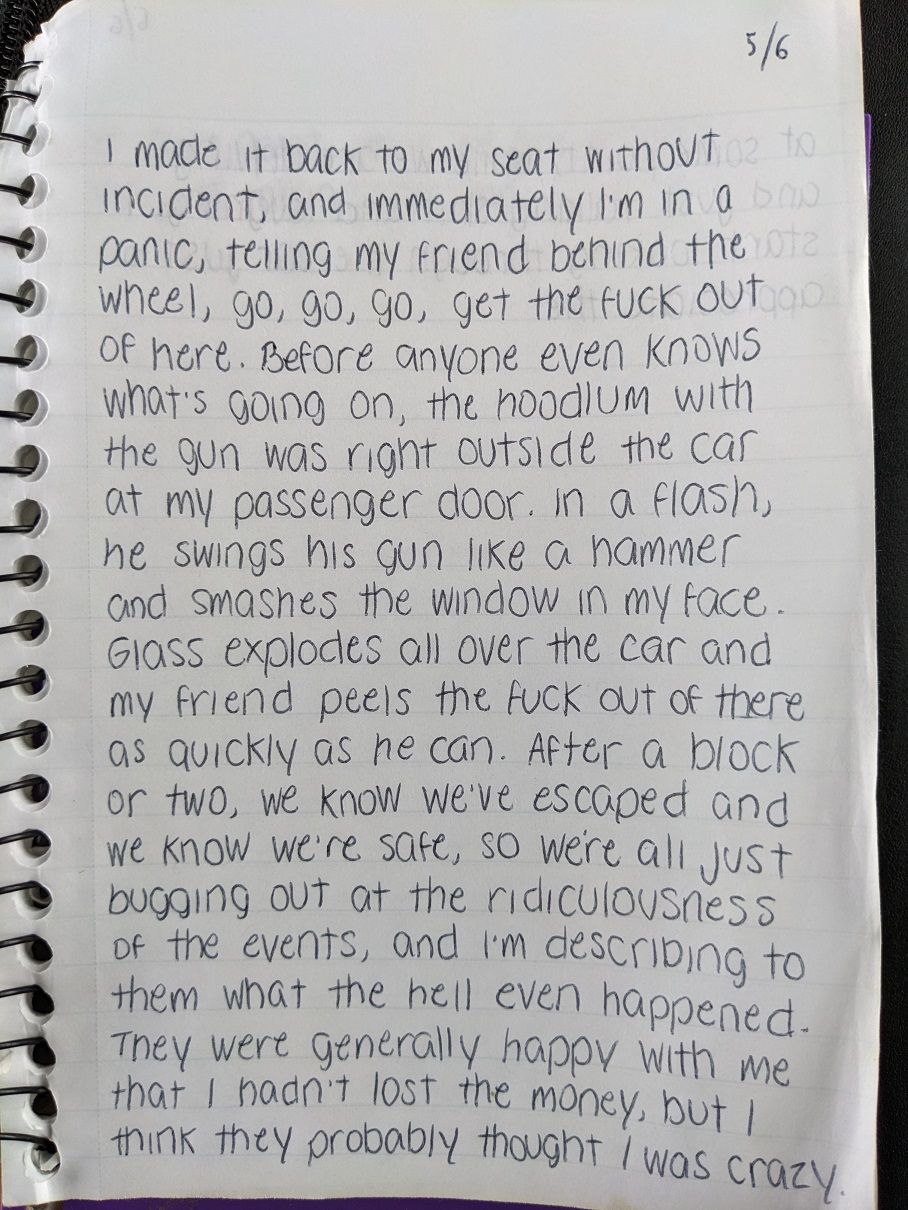 5/6
I made it back to my seat without
incident, and immediately I'm in a
panic, telling my friend behind the
wheel, go, go, go, get the fuck out
of here. Before anyone even knows
what's going on, the hoodlum with
the gun was right outside the car
at my passenger door. In a flash,
he swings his gun like a hammer
and smashes the window in my face.
Glass explodes all over the car and
my friend peels the fuck out of there
as quickly as he can. After a block
or two, we know we've escaped and
we know we're safe, so we're all just
bugging out at the ridiculousness
of the events, and I'm describing to
them what the hell even happened.
They were generally happy with me
that I hadn't lost the money, but I
think they probably thought I was crazy.